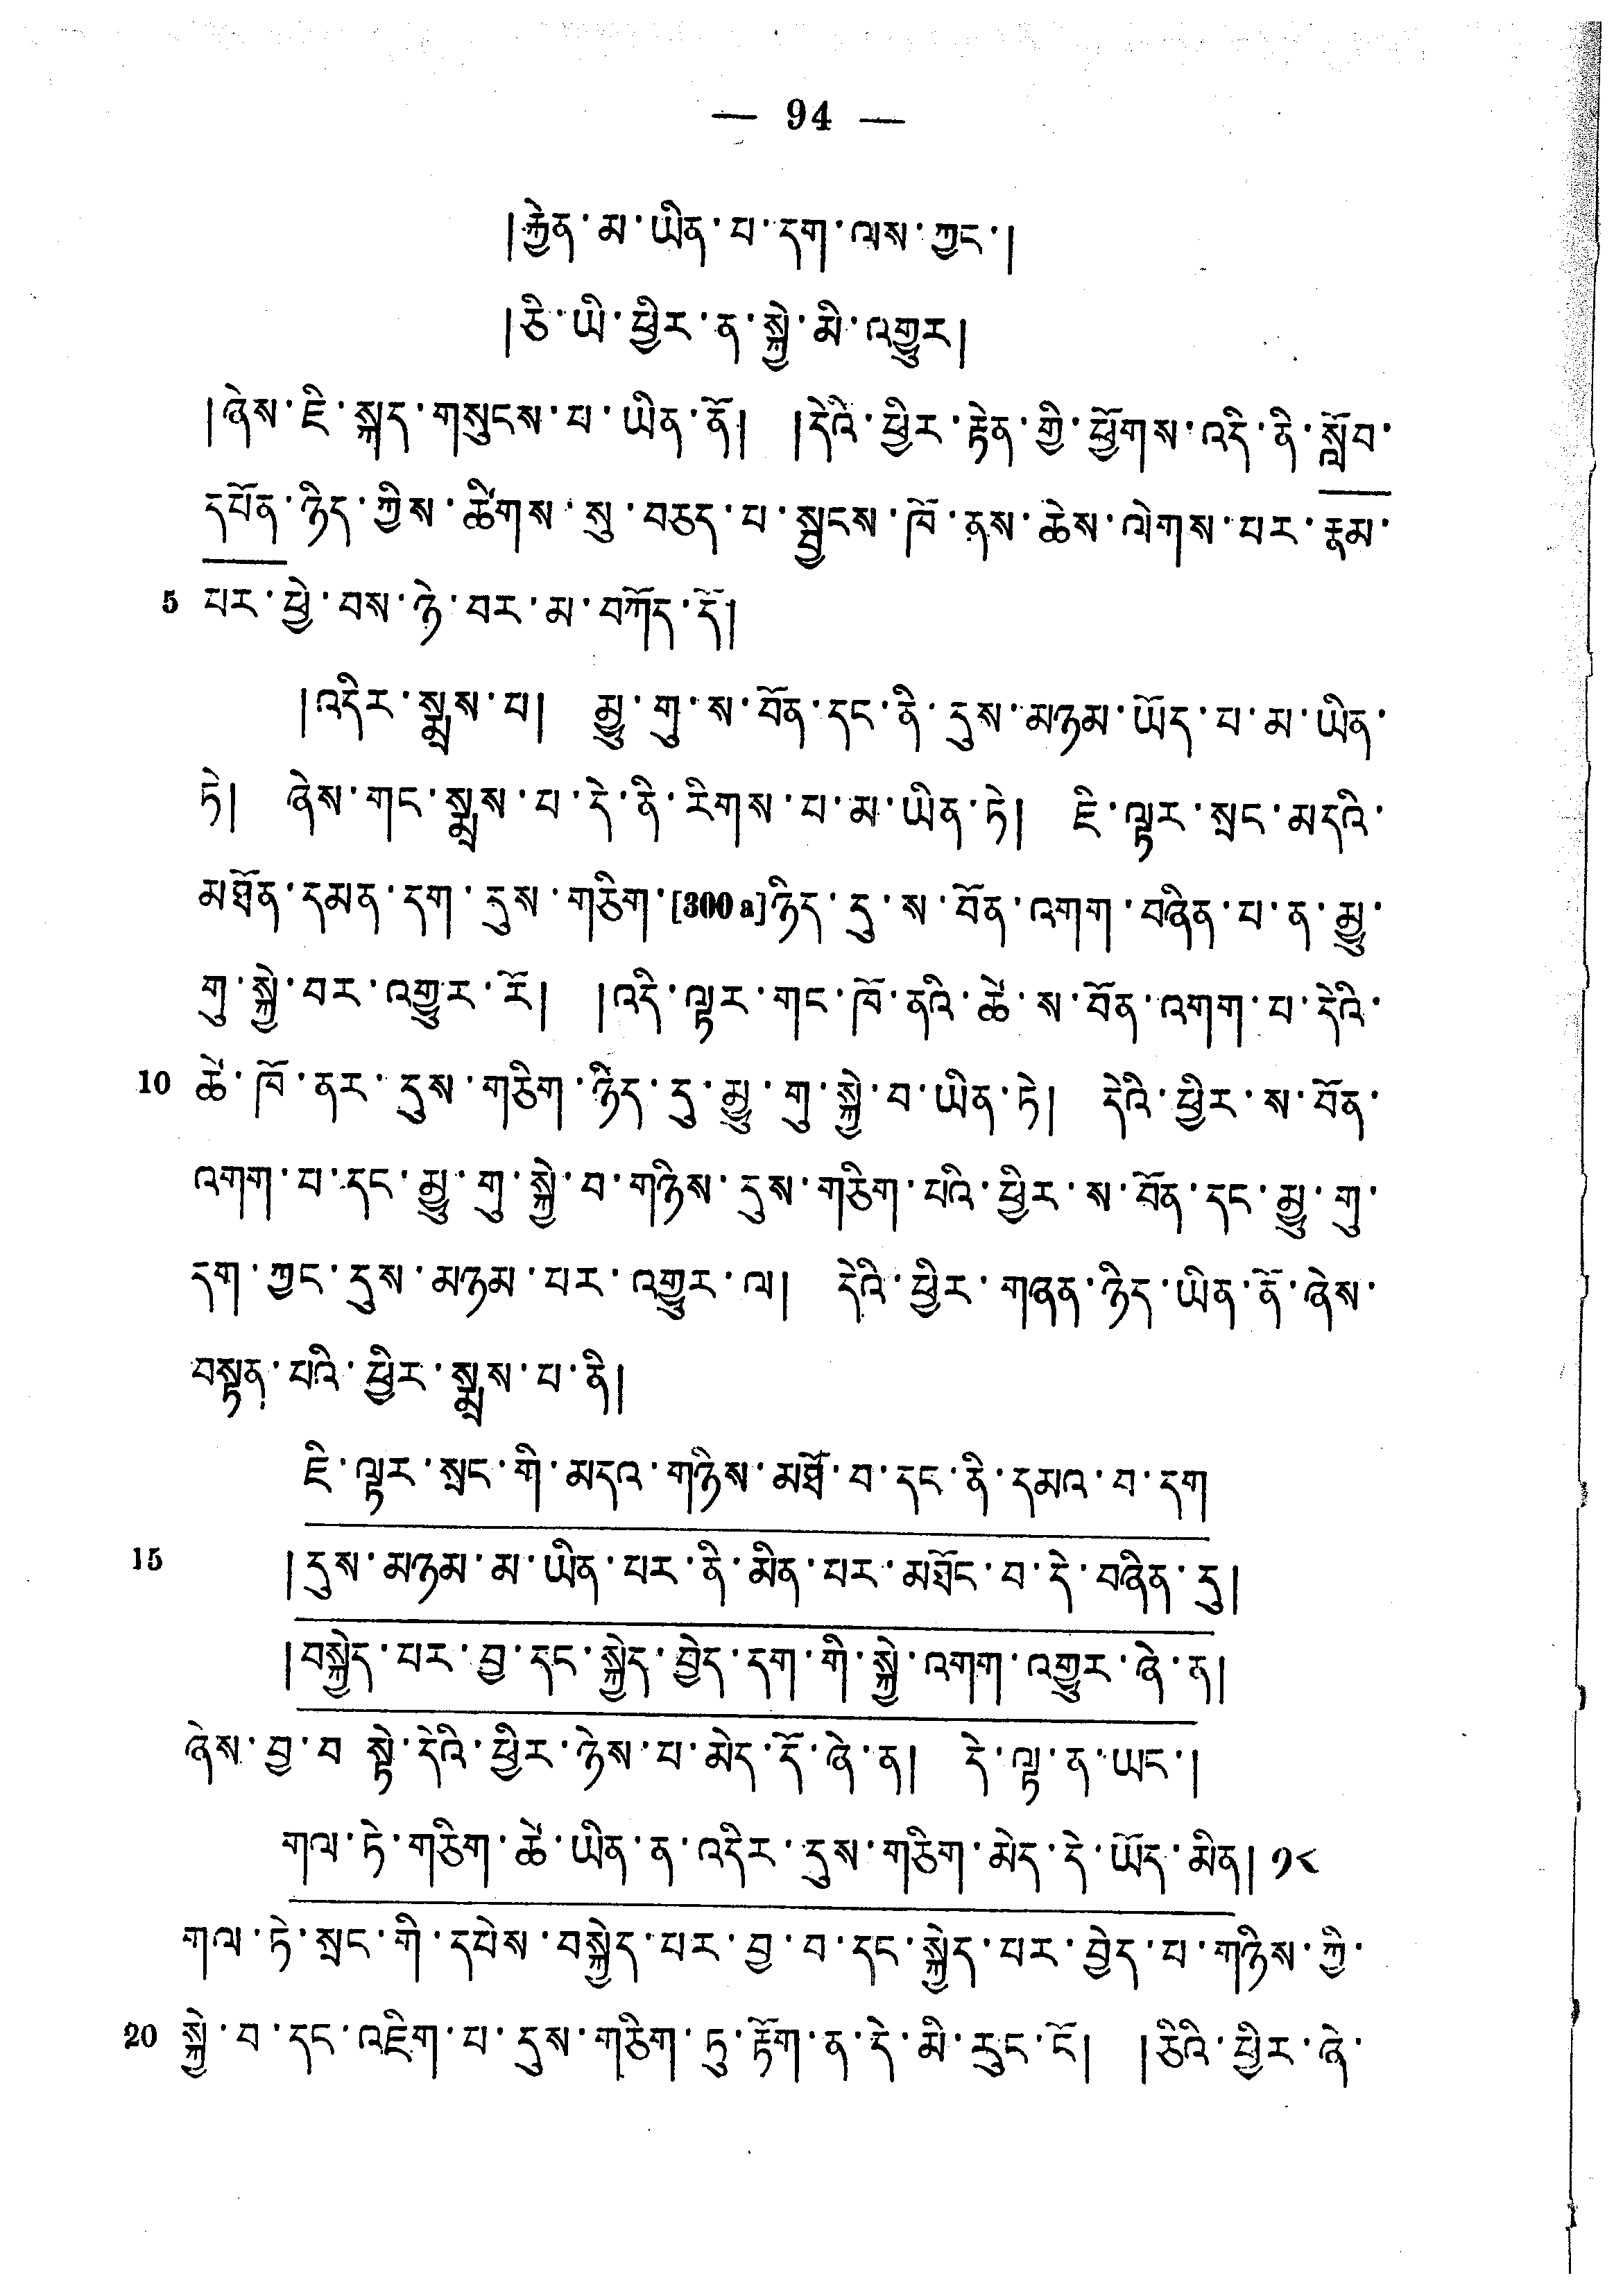 — 94 —
།རྐྱེན་མ་ཡིན་པ་དག་ལས་ཀྱང་།
།ཅི་ཡི་ཕྱིར་ན་སྐྱེ་མི་འགྱུར།
།ཞེས་ཇི་སྐད་གསུངས་པ་ཡིན་ནོ། །དེའི་ཕྱིར་རྟེན་གྱི་ཕྱོགས་འདི་ནི་སློབ་
དཔོན་ཉིད་ཀྱིས་ཚིགས་སུ་བཅད་པ་སྦྱངས་ཁོ་ནས་ཆེས་ལེགས་པར་རྣམ་
5 པར་ཕྱེ་བས་ཉེ་བར་མ་བཀོད་དོ།
།འདིར་སྨྲས་པ། མྱུ་གུ་ས་བོན་དང་ནི་དུས་མཉམ་ཡོད་པ་མ་ཡིན་
ཏེ། ཞེས་གང་སྨྲས་པ་དེ་ནི་རིགས་པ་མ་ཡིན་ཏེ། ཇི་ལྟར་སྲང་མདའི་
མཐོན་དམན་དག་དུས་གཅིག་[300 a]ཉིད་དུ་ས་བོན་འགག་བཞིན་པ་ན་མྱུ་
གུ་སྐྱེ་བར་འགྱུར་རོ། །འདི་ལྟར་གང་ཁོ་ནའི་ཚེ་ས་བོན་འགག་པ་དེའི་
10 ཚེ་ཁོ་ནར་དུས་གཅིག་ཉིད་དུ་མྱུ་གུ་སྐྱེ་བ་ཡིན་ཏེ། དེའི་ཕྱིར་ས་བོན་
འགག་པ་དང་མྱུ་གུ་སྐྱེ་བ་གཉིས་དུས་གཅིག་པའི་ཕྱིར་ས་བོན་དང་མྱུ་གུ་
དག་ཀྱང་དུས་མཉམ་པར་འགྱུར་ལ། དེའི་ཕྱིར་གཞན་ཉིད་ཡིན་ནོ་ཞེས་
བསྟན་པའི་ཕྱིར་སྨྲས་པ་ནི།
ཇི་ལྟར་སྲང་གི་མདའ་གཉིས་མཐོ་བ་དང་ནི་དམའ་བ་དག
15 །དུས་མཉམ་མ་ཡིན་པར་ནི་མིན་པར་མཐོང་བ་དེ་བཞིན་དུ།
།བསྐྱེད་པར་བྱ་དང་སྐྱེད་བྱེད་དག་གི་སྐྱེ་འགག་འགྱུར་ཞེ་ན།
ཞེས་བྱ་བ སྟེ་དེའི་ཕྱིར་ཉེས་པ་མེད་དོ་ཞེ་ན། དེ་ལྟ་ན་ཡང་།
གལ་ཏེ་གཅིག་ཚེ་ཡིན་ན་འདིར་དུས་གཅིག་མེད་དེ་ཡོད་མིན། ༡༨
གལ་ཏེ་སྲང་གི་དཔེས་བསྐྱེད་པར་བྱ་བ་དང་སྐྱེད་པར་བྱེད་པ་གཉིས་ཀྱི་
20 སྐྱེ་བ་དང་འཇིག་པ་དུས་གཅིག་ཏུ་རྟོག་ན་དེ་མི་རུང་ངོ། །ཅིའི་ཕྱིར་ཞེ་